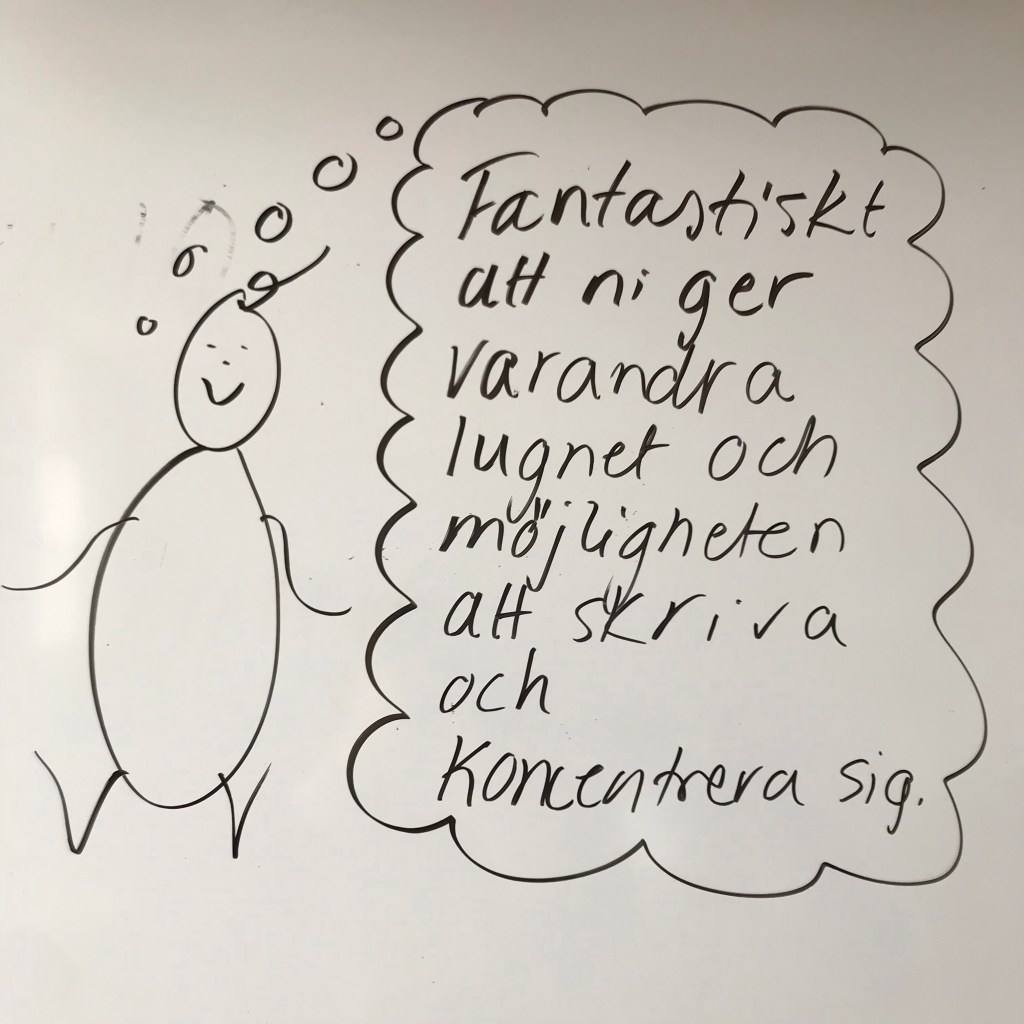 Fantastiskt
att ni ger
varandra
lugnet och
möjligheten
att skriva
och
koncentrera sig.